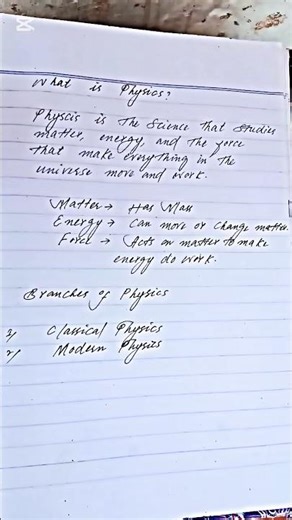 What is Physics?
Physcis is The Science That Studies
matter, energy, and The force
that make everything in The
universe move and work.
Matter → Has Mass
Energy → Can move or change matter.
Force → Acts on matter to make
energy do work.
Branches of Physics
1) Classical Physics
2) Modern Physics